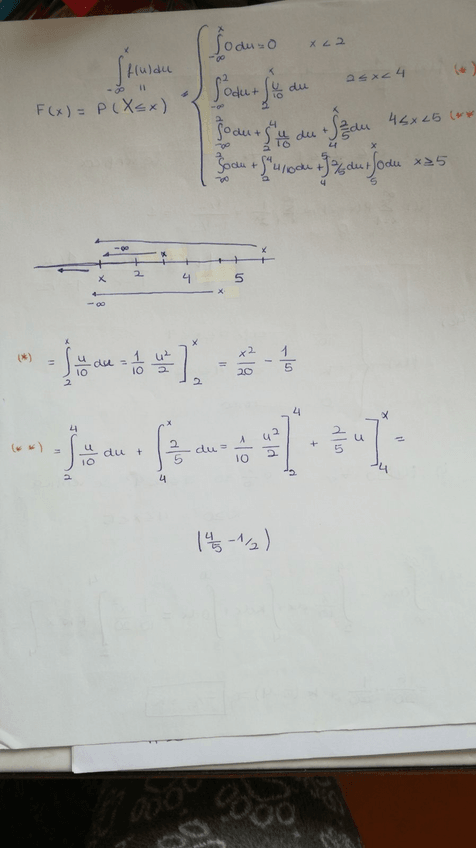 F(x) = P(X ≤ x) = ∫_{-∞}^{x} f(u)du =
∫_{-∞}^{x} 0 du = 0 x < 2
∫_{-∞}^{2} 0 du + ∫_{2}^{x} u/10 du 2 ≤ x < 4 (*)
∫_{-∞}^{2} 0 du + ∫_{2}^{4} u/10 du + ∫_{4}^{x} 2/5 du 4 ≤ x < 5 (**)
∫_{-∞}^{2} 0 du + ∫_{2}^{4} u/10 du + ∫_{4}^{5} 2/5 du + ∫_{5}^{x} 0 du x ≥ 5
-∞ x x
x 2 4 5
-∞ x
(*) = ∫_{2}^{x} u/10 du = 1/10 u²/2 ]_{2}^{x} = x²/20 - 1/5
(**) = ∫_{2}^{4} u/10 du + ∫_{4}^{x} 2/5 du = 1/10 u²/2 ]_{2}^{4} + 2/5 u ]_{4}^{x} =
(4/5 - 1/2)